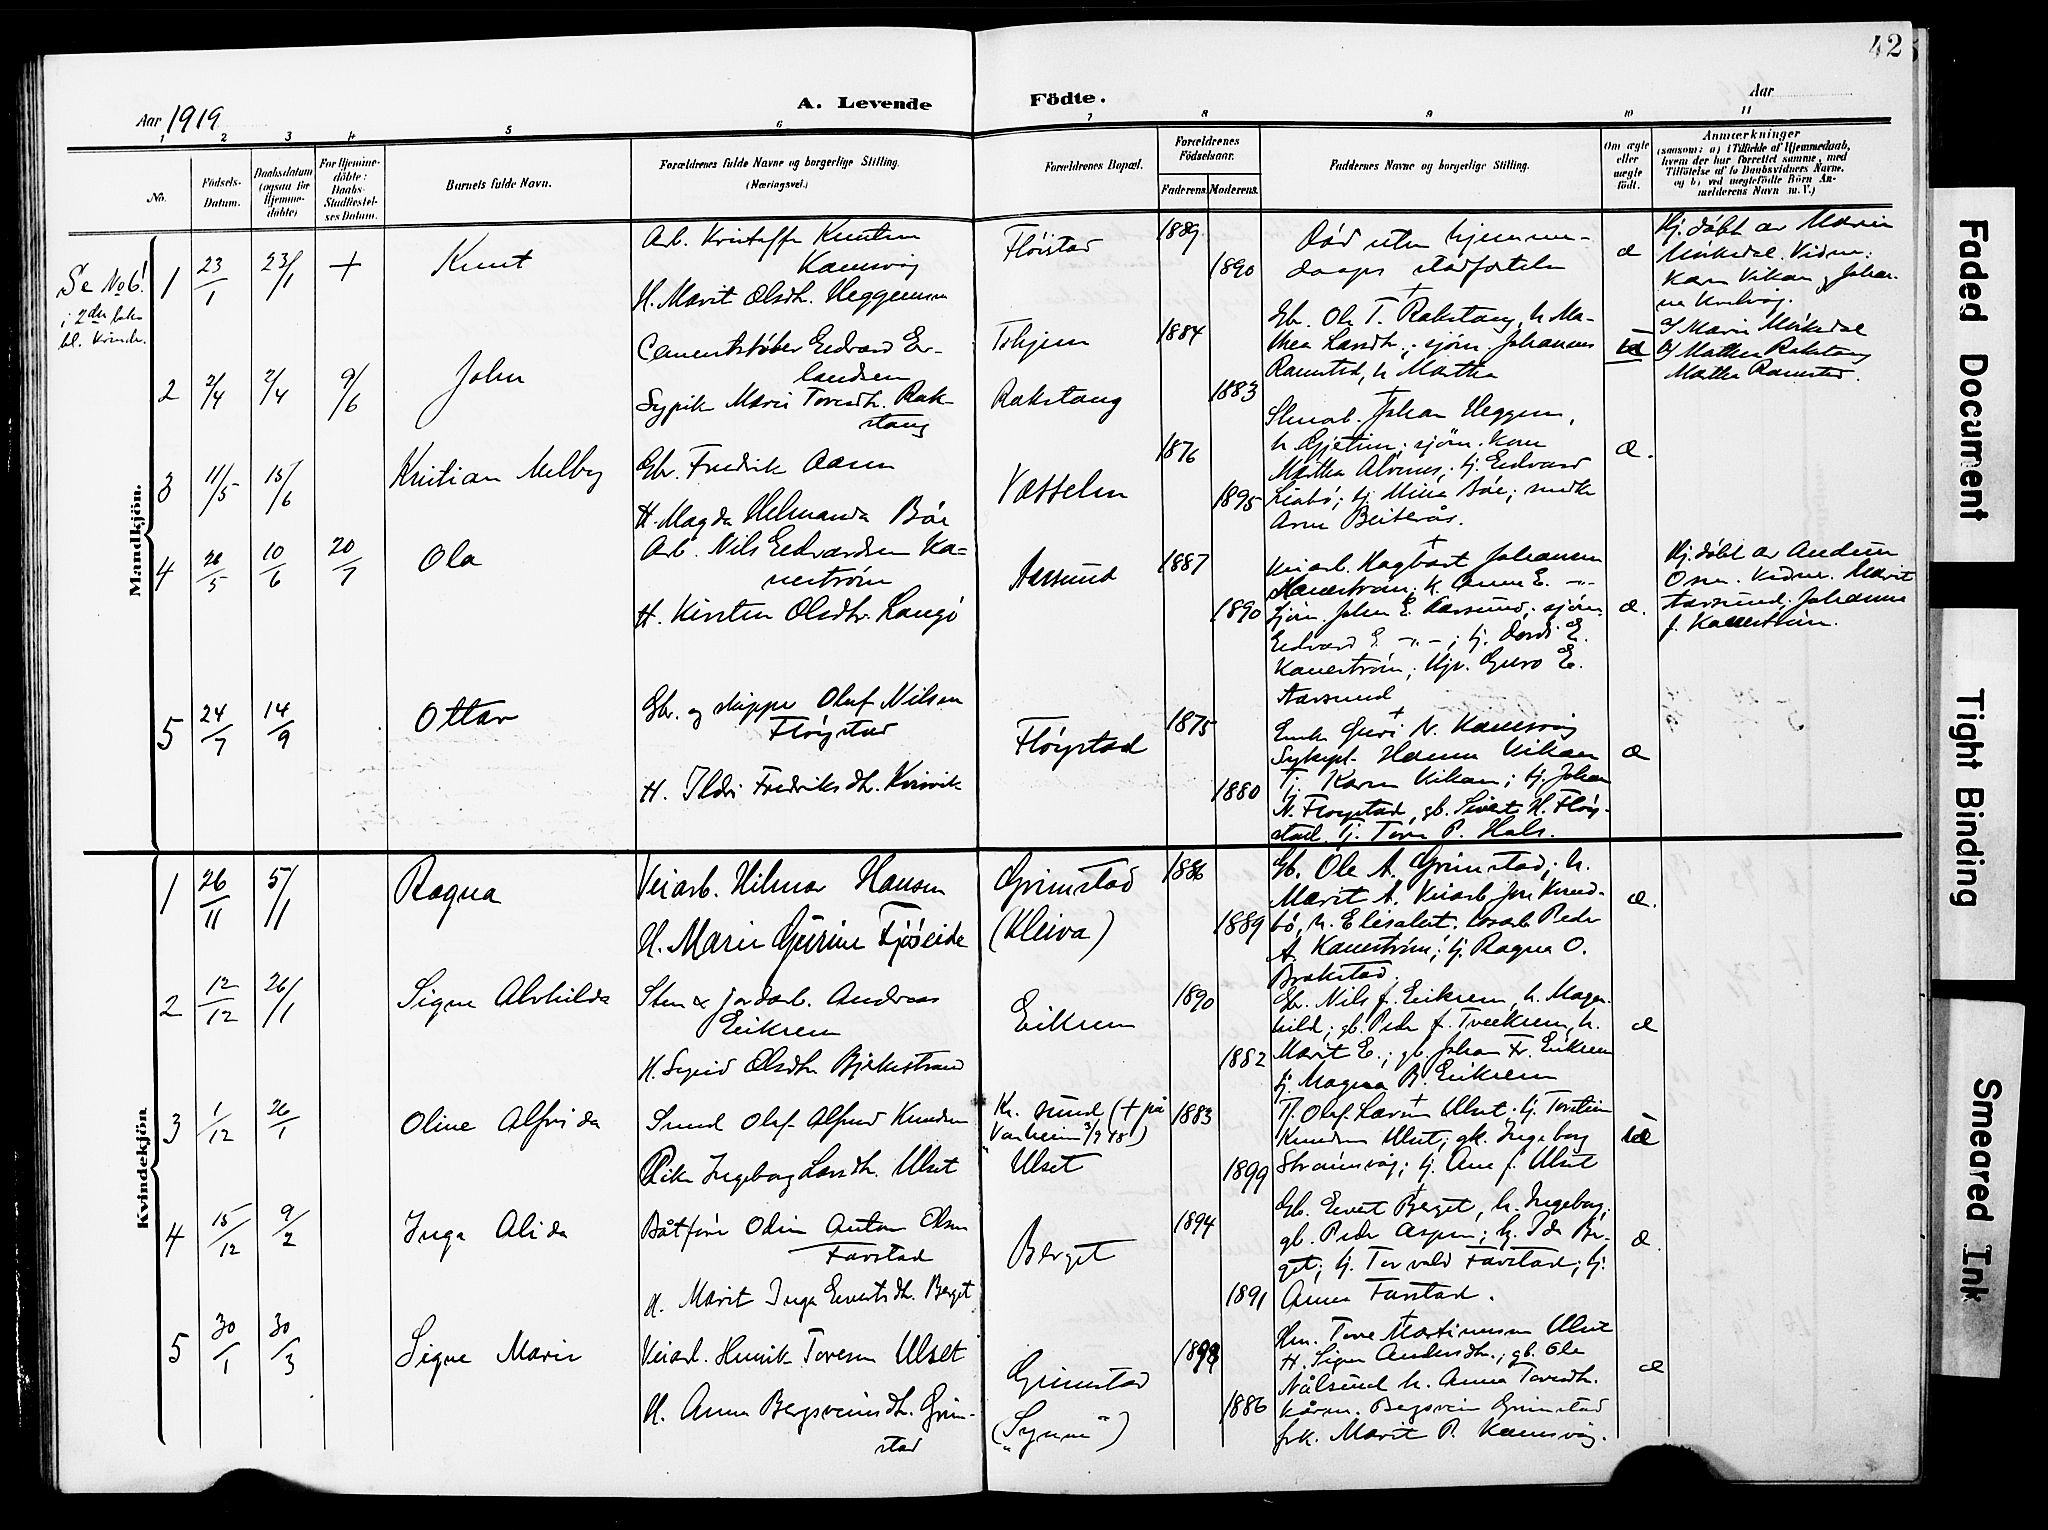 42
Aar 1919
A. Levende Födte.
Aar
1 2 3 4 5 6 7 8 9 10 11
No.
Födsels-Datum.
Daabsdatum (ogsaa for Hjemmedöbte)
For Hjemmedöbte: Daabs-Stadfæstelses Datum.
Barnets fulde Navn.
Forældrenes fulde Navne og borgerlige Stilling. (Næringsvei.)
Forældrenes Bopæl.
Forældrenes Födselsaar.
Faderens. Moderens.
Faddernes Navne og borgerlige Stilling.
Om ægte eller uægte födt.
Anmærkninger (saasom: a) i Tilfælde af Hjemmedaab, hvem der har forrettet samme, med Tilföielse af to Daabsvidners Navne. og b) ved uægtefödte Börn Anmelderens Navn m. V.)
Mandkjön.
Se No 6!
i 2den
bl. Kvindk.
1 23/1 23/1 + Knut
Arb. Kristoffer Knutsen
Kamsvåg
H. Marit Olsdtr. Heggemsnes
Fløistad
1889
1890
Död uten hjemme-
daaps stadfæstelse
æ
Hj. döbt av Maria
Mörkedal. Vidner:
Karen Vikan, Johan-
ne
2 2/4 2/4 9/6 John
Cementstøber Edvard Er-
landsen
Sypike Marie Toresdtr. Rak-
stang
Rakstang
1884
1883
Gb. Ole T. Rakstang, h. Ma-
thea Larsdtr.; sjöm. Johannes
Ramstad, h. Martha
uæ
J. Marie Mörkedal
Mathea Rakstang
Martha Ramstad.
3 11/5 15/6 Kristian Melby
Gbr. Fredrik Aasen
H. Magda Helmanda Böe
Vasselen
1876
1895
Johan Heggem,
h. Gjetine; sjöm.
Martha Alvenes; tj. Edvard
tj. Mina Böe;
Arne Beiterås.
æ.
4 28/5 10/6 20/7 Ola
Arb. Nils Edvardsen Ka-
nestrøm
H. Kirsten Olsdtr. Langö
Aarsund
1887
1890
Veiarb. Hagbart Johansen
Kanestrøm; h. Anne E. -"-
Sjöm. John E. Aarsund; sjöm.
Edvard E. -"-; tj. Dordi E.
Kanestrøm; Guro E.
Aarsund
æ.
Hj. döbt av Anders
Osen. Vidner. Marit
Aarsund, Johanna
J. Kanestrøm.
5 24/7 14/9 Ottar
Gbr. og skipper Oluf Nilsen
Fløystad
H. Ildri Fredriksdtr. Kvisvik
Fløystad
1875
1880
Enke Guri N. Kamsvåg
Sykepl. Hanna Vikan
Tj. Karen Vikan; tj. Johan
N. Fløystad, gb. Sivert H. Fløy-
stad, tj. Tore P. Hals.
æ
Kvindekjön.
1 26/11 5/11 Ragna
Veiarb. Hilmar Hansen
H. Marie Geirine Fjøseide
Grimstad
(Kleiva)
1886
1889
Gb. Ole A. Grimstad; h.
Marit A. Veiarb.
bö, h. Elisabet. Peder
A. Kanestrøm; tj. Ragna O.
Brakstad.
æ.
2 12/12 26/1 Signe Alvhilda
Sten & jordarb. Andreas
Eikrem
H. Sigrid Olsdtr. Bjerkestrand
Eikrem
1890
1882
Gb. Nils J. Eikrem, h. Magn-
hild; gb. Peder J. Tveekrem, h.
Marit E.; gb. Johan Fr. Eikrem
tj. Magna B. Eikrem
æ
3 1/12 26/1 Oline Alfrida
Smed Olaf Alfred Knudsen
Pike Ingeborg Larsdtr. Ulset
Kr. sund († på
Varheim 3/9 18)
Ulset
1883
1899
Tj. Olaf Larsen Ulset. tj. Torstein
Knudsen Ulset; gk. Ingeborg
Strømsvåg; tj. Ane J. Ulset
uæ
4 15/12 9/2 Inga Alida
Båtfører Odin Anton Olsen
Farstad
H. Marit Inga Evertsdtr. Berget
Berget
1894
1891
Gb. Evert Berget, h. Ingeborg;
gb. Peder Aspen; tj. Ida Ber-
get; tj. Torvald Farstad; tj.
Anna Farstad.
æ.
5 30/1 30/3 Signe Marie
Veiarb. Henrik Toresen Ulset
H. Anna Bergsveinsdtr. Grim-
stad
Grimstad
("Synnes")
1886
Tore Martinussen Ulset
H. Signe Andersdtr.; gb. Ole
Nålsund h. Anna Toresdtr.
Kårm. Bergsvein Grimstad
frk. Marit P. Kamsvåg.
æ
Faded Document
Tight Binding
Smeared Ink